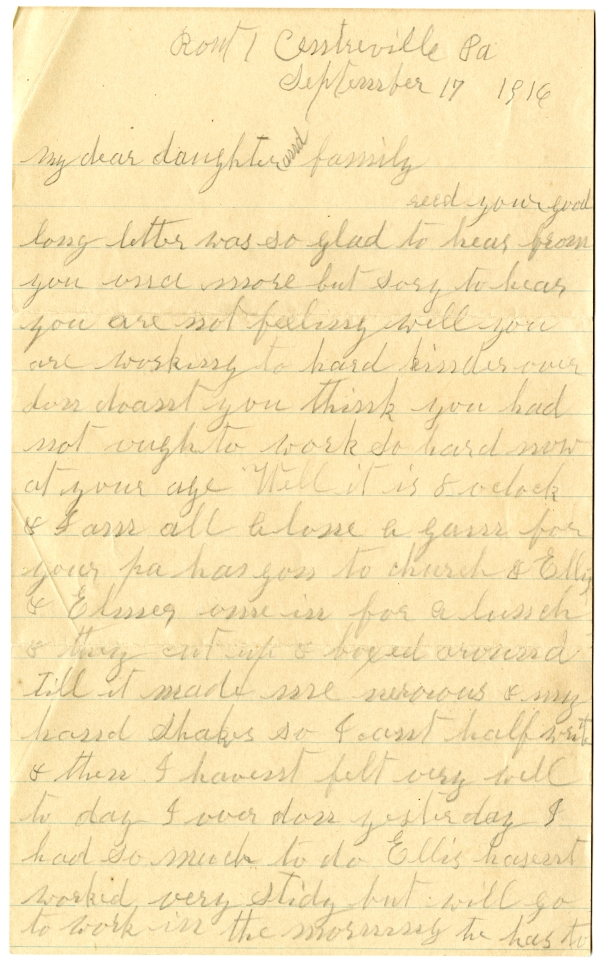 Rout 1 Centreville Pa
September 17 1916
my dear daughter and family
recd your good
long letter was so glad to hear from
you once more but sory to hear
you are not feeling well you
are working to hard kinder over
don doant you think you had
not ought to work so hard now
at your age Well it is 8 oclock
& I am all a lone a gann for
your pa has gon to church & Ellis
& Elmer come in for a lunch
& they cut up & boxed around
till it made me nervous & my
hand shakes so I cant half write
& then I havent felt very well
to day I over don yesterday I
had so much to do Ellis hasent
worked very stidy but will go
to work in the morning he has to